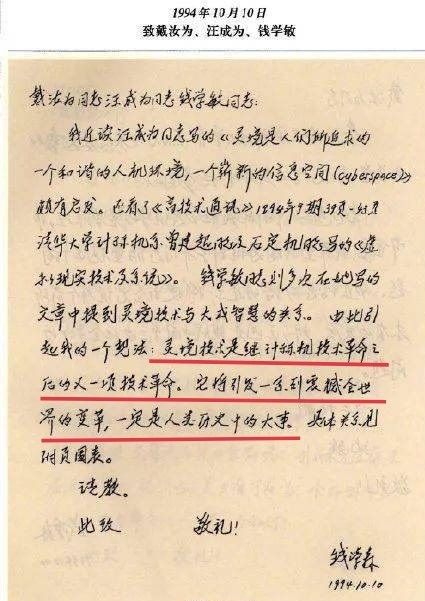 1994年10月10日
致戴汝为、汪成为、钱学敏
戴汝为同志汪成为同志钱学敏同志:
我近读汪成为同志写的《灵境是人们所追求的
一个和谐的人机环境,一个崭新的信息空间(cyberspace)》
颇有启发。也看了《高技术通讯》1994年9期39页-
清华大学计算机系曾建超 及石定机 写的《虚
拟现实技术及系统》。钱学敏 则多次在她写的
文章中提到灵境技术与大成智慧的关系。由此引
起我的一个想法:灵境技术是继计算机技术革命之
后的又一项技术革命。它将引发一系列震撼全世
界的变革,一定是人类历史中的大事。具体关系见
附页图表。
请教。
此致 敬礼!
钱学森
1994.10.10